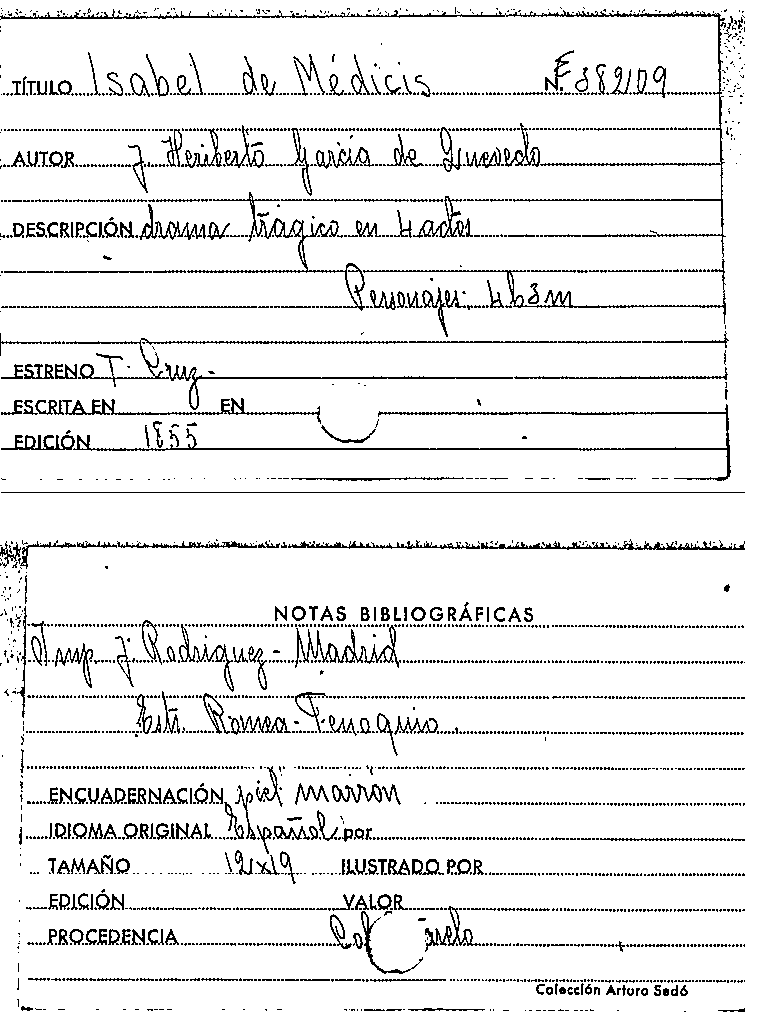 TÍTULO Isabel de Médicis N.º E 382109
AUTOR J. Heriberto García de Quevedo
DESCRIPCIÓN drama trágico en 4 actos
Personajes: 4h 3m
ESTRENO T. Cruz-
ESCRITA EN EN
EDICIÓN 1855
NOTAS BIBLIOGRÁFICAS
Imp. J. Rodriguez - Madrid
Estr. Romea-Tenoquio.
ENCUADERNACIÓN piel marrón
IDIOMA ORIGINAL Español por
TAMAÑO 12x19 ILUSTRADO POR
EDICIÓN VALOR
PROCEDENCIA
Colección Arturo Sedó